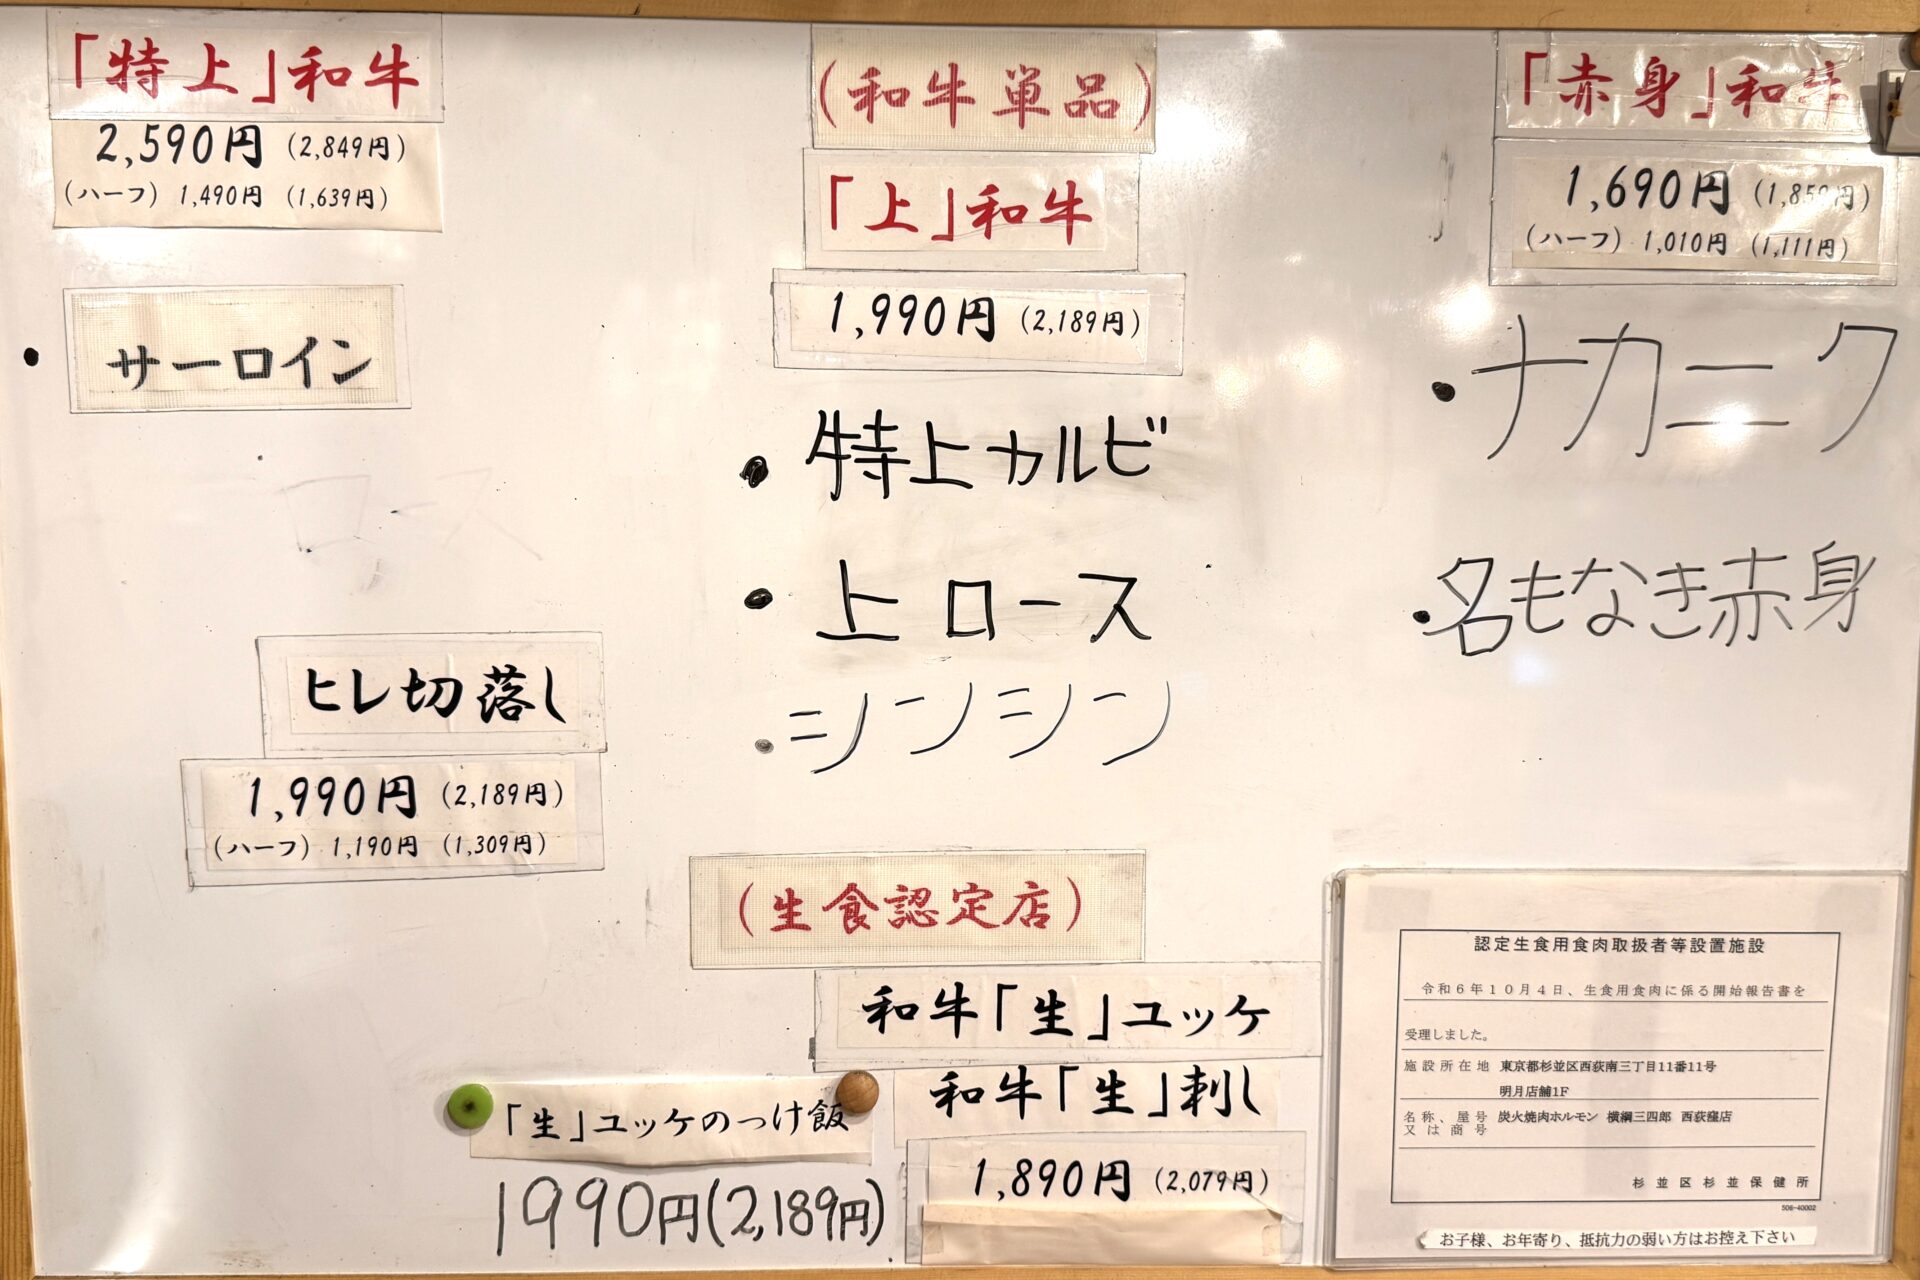 「特上」和牛
2,590円 (2,849円)
(ハーフ) 1,490円 (1,639円)
・サーロイン
ロース
ヒレ切落し
1,990円 (2,189円)
(ハーフ) 1,190円 (1,309円)
(和牛単品)
「上」和牛
1,990円 (2,189円)
・特上カルビ
・上ロース
・シンシン
「赤身」和牛
1,690円 (1,859円)
(ハーフ) 1,010円 (1,111円)
・ナカニク
・名もなき赤身
(生食認定店)
和牛「生」ユッケ
和牛「生」刺し
1,890円 (2,079円)
「生」ユッケのっけ飯
1990円(2,189円)
認定生食用食肉取扱者等設置施設
令和6年10月4日、生食用食肉に係る開始報告書を
受理しました。
施設所在地 東京都杉並区西荻南三丁目11番11号
明月店舗1F
名称、屋号又は商号 炭火焼肉ホルモン 横綱三四郎 西荻窪店
杉並区杉並保健所
506-40002
お子様、お年寄り、抵抗力の弱い方はお控え下さい